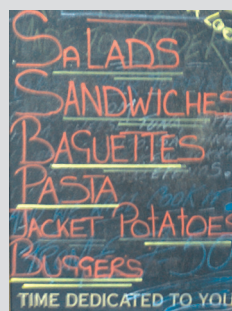 SALADS
SANDWICHES
BAGUETTES
PASTA
JACKET POTATOES
BUGGERS
TIME DEDICATED TO YOU